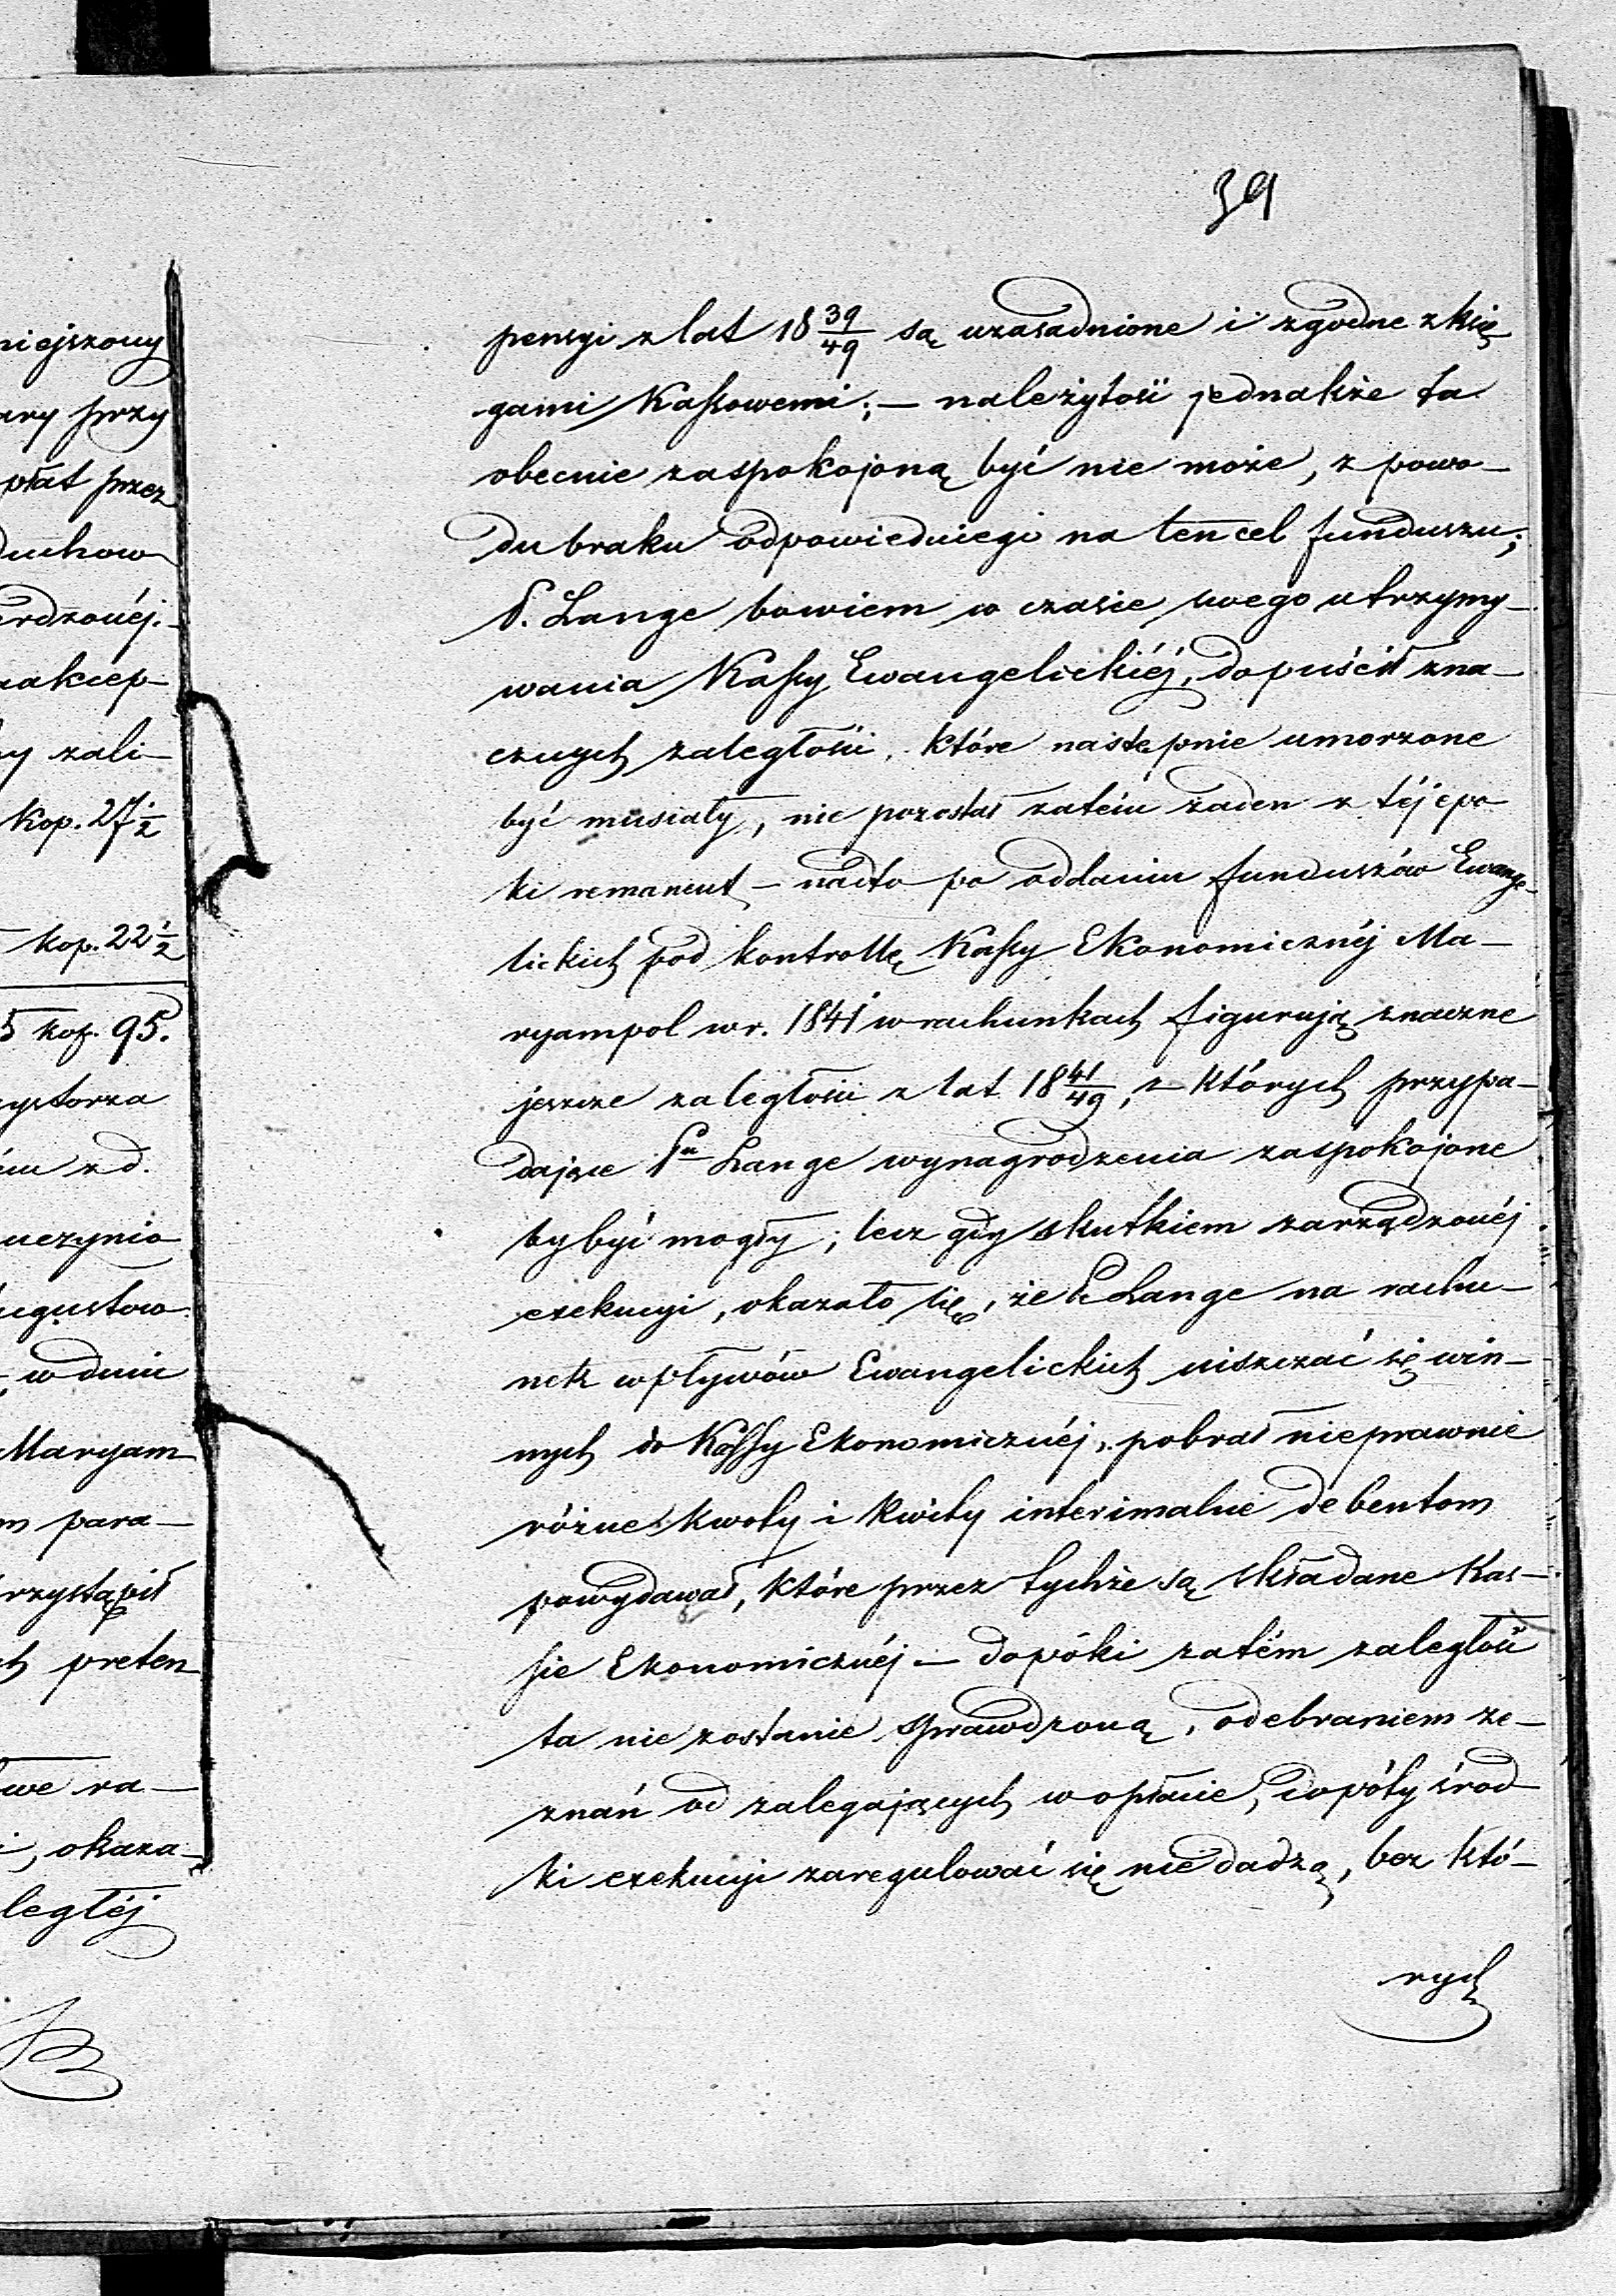 niejszony
ary przy
płat przez
duchow
erdzonéj.
aakcep-
ny zali-
Kop. 27 1/2
kop. 22 1/2
5 kop. 95.
systorza
z d.
uczynio
ugustow
w dniu
Maryam
m para-
rzystąpił
ch preten
we ra-
i, okaza-
ległéj
39
pensyi z lat 18 39/49 są uzasadnione i zgodne z księ
gami Kassowemi; — należytość jednakże ta
obecnie zaspokojoną być nie może, z powo-
du braku odpowiedniego na ten cel funduszu;
P. Lange bowiem w czasie swego utrzymy-
wania Kassy Ewangelickiéj, dopuścił zna-
cznych zaległości, które następnie umorzone
być musiały, nie pozostał zatém żaden z téj epo
ki remanent — nadto po oddaniu funduszów Ewange-
lickich pod kontrollę Kassy Ekonomicznéj Ma-
ryampol w r. 1841 w rachunkach figurują znaczne
jeszcze zaległości z lat 18 41/49, z których przypa-
dające Pu Lange wynagrodzenia zaspokojone
by być mogły; lecz gdy skutkiem zarządzonéj
exekucyi, okazało się, że P. Lange na rachu-
nek wpływów Ewangelickich uiszczać się win-
nych do Kassy Ekonomicznéj, pobrał nieprawnie
różne kwoty i kwity interimalne debentom
powydawał, które przez tychże są składane Kas-
sie Ekonomicznéj — dopóki zatém zaległość
ta nie zostanie sprawdzoną, odebraniem ze-
znań od zalegających w opłacie, dopóty środ
ki exekucyi zaregulować się nie dadzą, bez któ-
rych